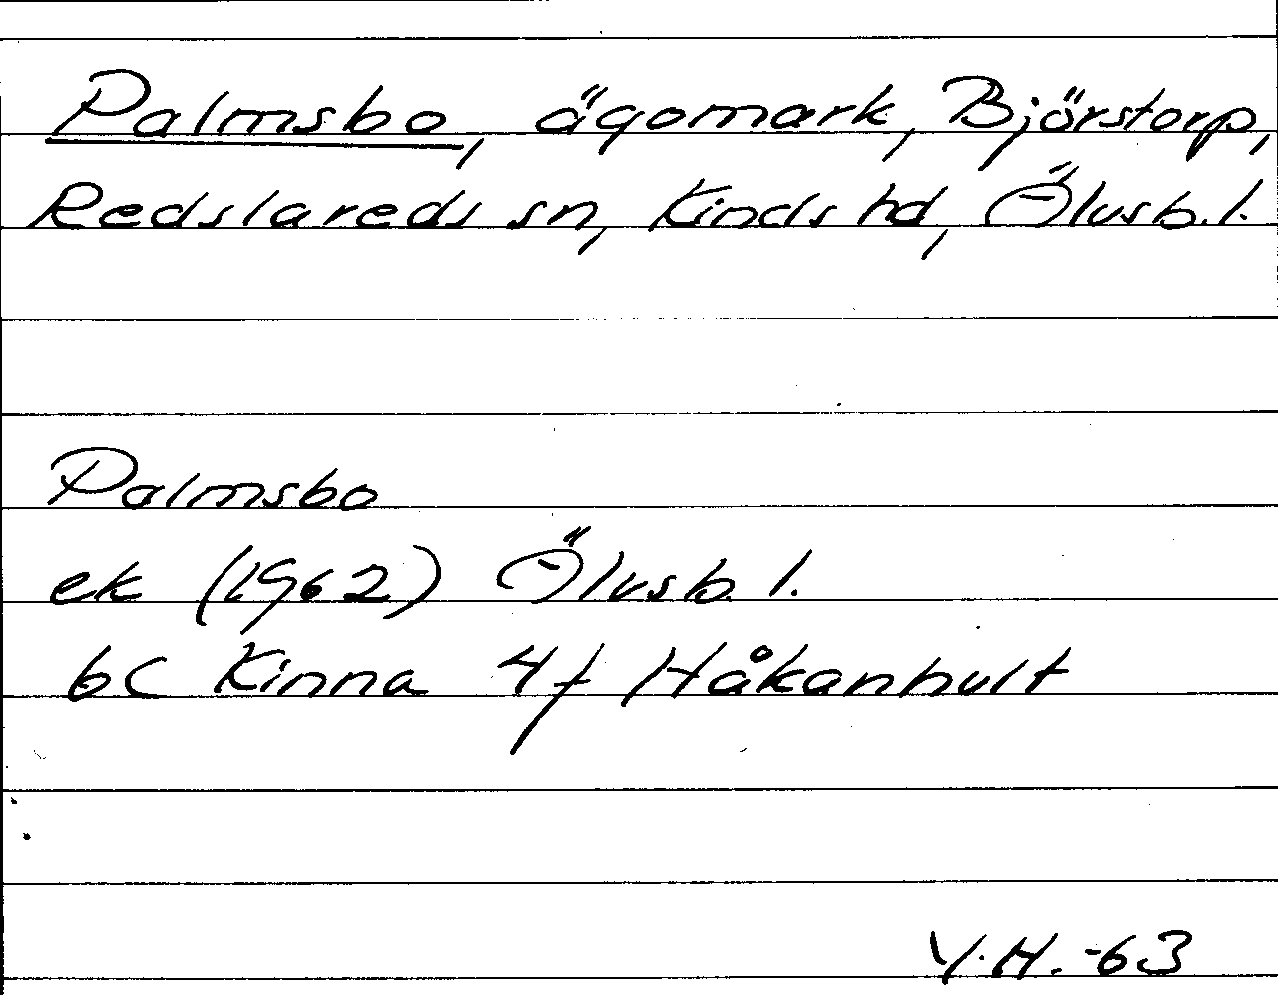 Palmsbo, ägomark, Björstorp,
Redslareds sn, Kinds hd, Älvsb. l.
Palmsbo
ek (1962) Älvsb. l.
6C Kinna 4f Håkanhult
Y.H. -63